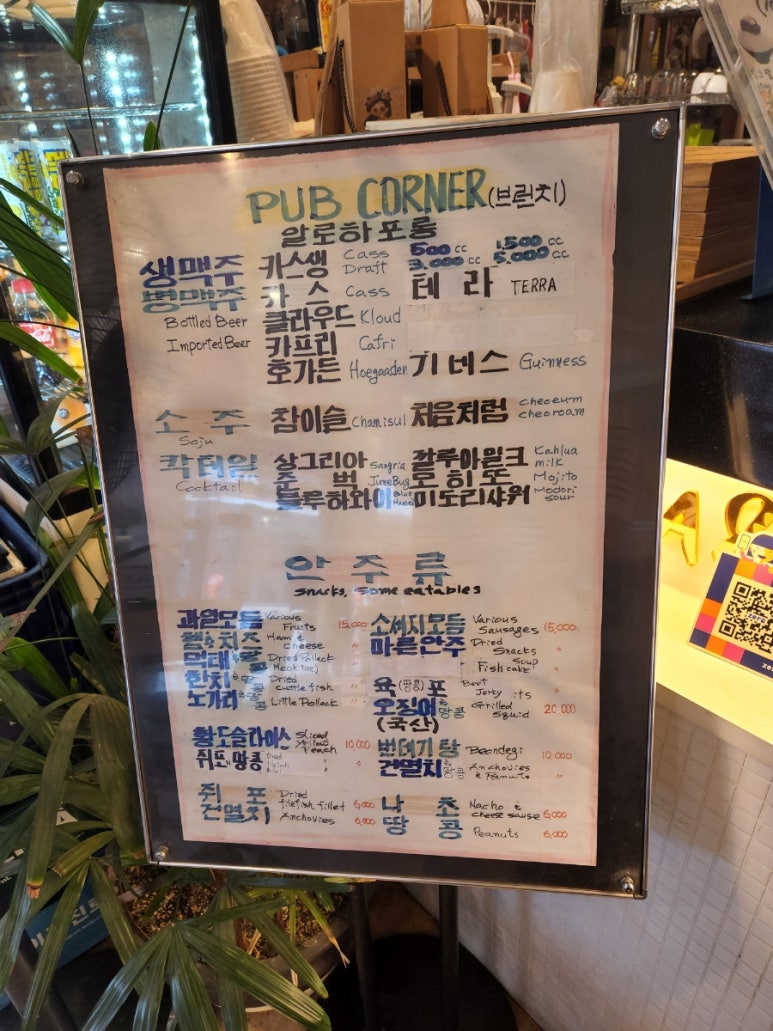 PUB CORNER (브런치)
알로하 포룸
생맥주 카스생 Cass Draft 500cc 1,500cc 3,000cc 5,000cc
병맥주 카스 Cass 테라 TERRA
Bottled Beer 클라우드 Kloud
Imported Beer 카프리 Cafri
호가든 Hoegaaden 기네스 Guinness
소주 참이슬 Chamisul 처음처럼 cheoeum cheoroam
Soju
칵터일 상그리아 Sangria 깔루아밀크 Kahlua milk
Cocktail 준벅 JuneBug 모히또 Mojito
블루하와이 Blue 미도리샤워 Modori sour
안주류
snacks, some eatables
과일모듬 Various Fruits 15,000 소세지모듬 Various Sausages 15,000
햄&치즈 Ham & cheese " 마른안주 Dried Snacks "
먹태&땅콩 Dried Pollack (Meoktae) " Fishcake Soup "
한치&땅콩 Dried cuttlefish " 육(땅콩)포 Beef Jerby its "
노가리&땅콩 Little Pollack " 오징어&땅콩 Grilled Squid 20,000
(국산)
황도슬라이스 Sliced Yellow Peach 10,000 번데기탕 Boondegi 10,000
쥐포&땅콩 " 건멸치&땅콩 Anchovies & Peanuts "
쥐포 Dried filefish fillet 6,000 나초 Nacho & cheese sause 6,000
건멸치 Anchovies 6,000 땅콩 Peanuts 6,000